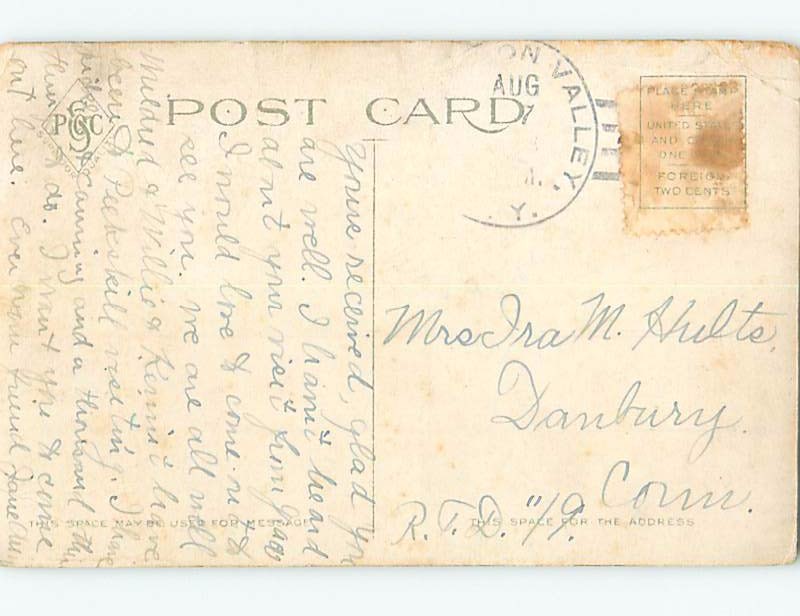 POST CARD
ON VALLEY,
AUG
7
Y.
PLACE STAMP
HERE
UNITED STATES
AND
ONE
FOREIGN
TWO CENTS
Yours received, glad you
are well. I han't heard
abn't your visit from Grace
I would love to come
see you. We are all well
Mildred & Willie & Kermit have
been to Peekskill visiting. I have
canning and a thousand
to do. I want you to come
out here. Ever your friend
Mrs Ira M. Hults,
Danbury.
Conn.
R.F.D. "19.
THIS SPACE MAY BE USED FOR MESSAGE
THIS SPACE FOR THE ADDRESS